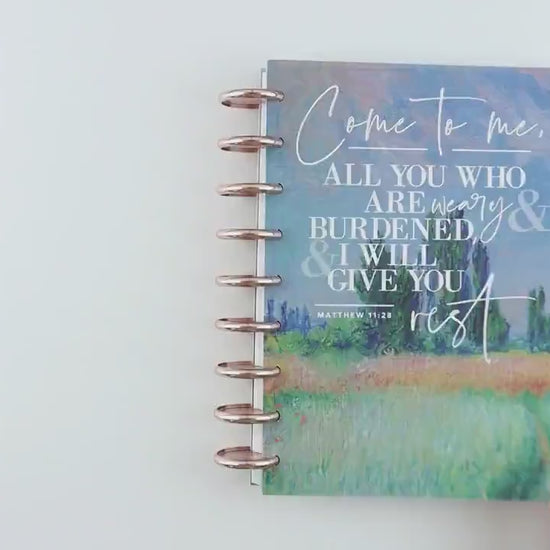 Come to me,
ALL YOU WHO
ARE weary &
BURDENED,
& I WILL
GIVE YOU
MATTHEW 11:28 rest